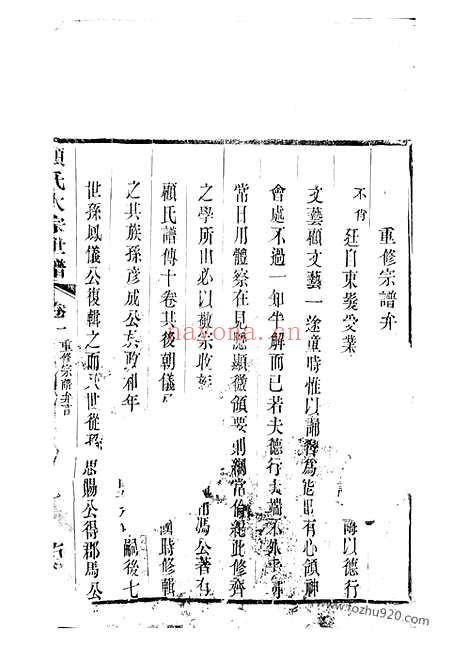 重修宗譜弁
不肖 廷自束髮受業 誨以德行
文藝顧文藝一途童時惟以誦 爲能即有心領神
會處不過一知半解而已若夫德行大端不外乎
常日用體察在見隱顯微領要則綱常倫紀此修齊
之學所由必以敬宗收 馬公著有
顧氏譜傳十卷其後朝儀 國時修輯
之其族孫彥成公 政和年 嗣後七
世孫鳳儀公復輯之而 世從孫思賜公得郡馬公
顧氏大宗世譜 卷一 重修宗譜弁言
hayong.com
www.fozhu920.com